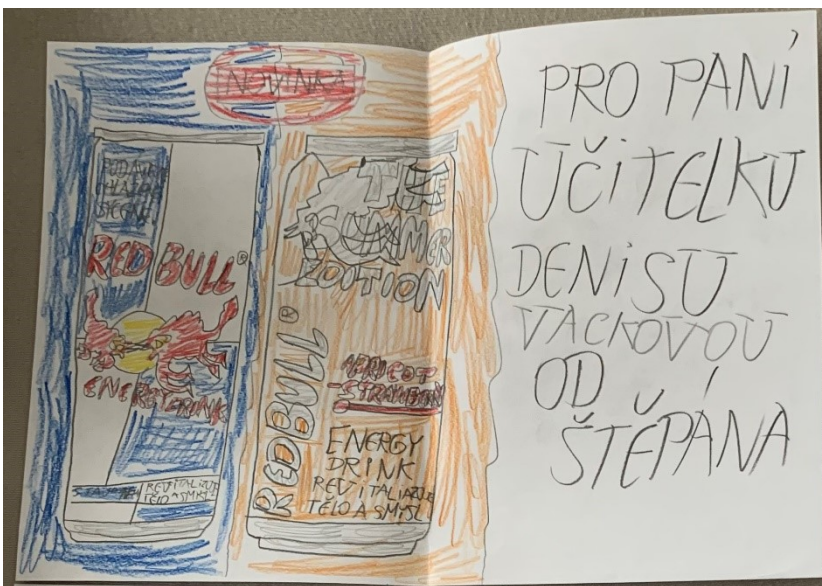 NOVINKA
PODÁVEJTE
CHLAZENÉ
RED BULL®
ENERGY DRINK
REVITALIZUJE
TĚLO A MYSL
THE
SUMMER
EDITION
RED BULL®
APRICOT
-STRAWBERRY
ENERGY
DRINK
REVITALIAZUJE
TĚLO A SMYSL
PRO PANÍ
UČITELKU
DENISU
VACKOVOU
OD
ŠTĚPÁNA